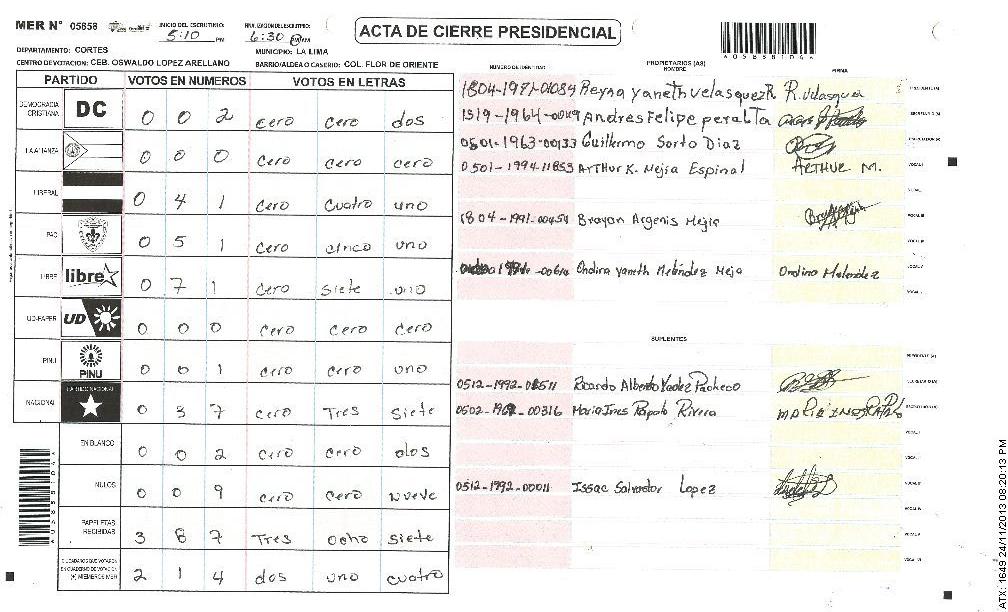 MER N° 05858 INICIO DEL ESCRUTINIO: 5:10 PM FINALIZACION DEL ESCRUTINIO: 6:30 PM
ACTA DE CIERRE PRESIDENCIAL
DEPARTAMENTO: CORTES MUNICIPIO: LA LIMA
CENTRO DE VOTACION: CEB. OSWALDO LOPEZ ARELLANO BARRIO/ALDEA O CASERIO: COL. FLOR DE ORIENTE
PARTIDO VOTOS EN NUMEROS VOTOS EN LETRAS
DEMOCRACIA CRISTIANA DC 0 0 2 cero cero dos
LA ALIANZA 0 0 0 cero cero cero
LIBERAL 0 4 1 cero cuatro uno
PAC 0 5 1 cero cinco uno
LIBRE libre 0 7 1 cero siete uno
UD-FAPER UD 0 0 0 cero cero cero
PINU PINU 0 0 1 cero cero uno
NACIONAL PARTIDO NACIONAL 0 3 7 cero Tres siete
EN BLANCO 0 0 2 cero cero dos
NULOS 0 0 9 cero cero nueve
PAPELETAS RECIBIDAS 3 8 7 Tres ocho siete
CIUDADANOS QUE VOTARON EN CUADERNO DE VOTACION (+) MIEMBROS MER 2 1 4 dos uno cuatro
NUMERO DE IDENTIDAD PROPIETARIOS (AS) NOMBRE FIRMA
1804-1971-01089 Reyna yaneth velasquez R. R. velasquez PRESIDENTE (A)
1519-1964-00049 Andres Felipe peralta SECRETARIO (A)
0801-1963-00133 Guillermo Sorto Diaz ESCRUTADOR (A)
0501-1994-11853 ArTHur K. Mejia Espinal ARTHUR M. VOCAL I
VOCAL II
1804-1991-00454 Brayan Argenis Mejia VOCAL III
VOCAL IV
-00610 Ondina yaneth Meléndez Mejia Ondina Melendez VOCAL V
SUPLENTES
PRESIDENTE (A)
0512-1992-00511 Ricardo Alberto Pacheco SECRETARIO (A)
0502-1962-00316 Maria Ines Rivera ESCRUTADOR (A)
VOCAL I
VOCAL II
0512-1992-00011 Issac Salvador Lopez VOCAL III
VOCAL IV
VOCAL V
A05858104
ATX: 1649 24/11/2013 08:20:13 PM